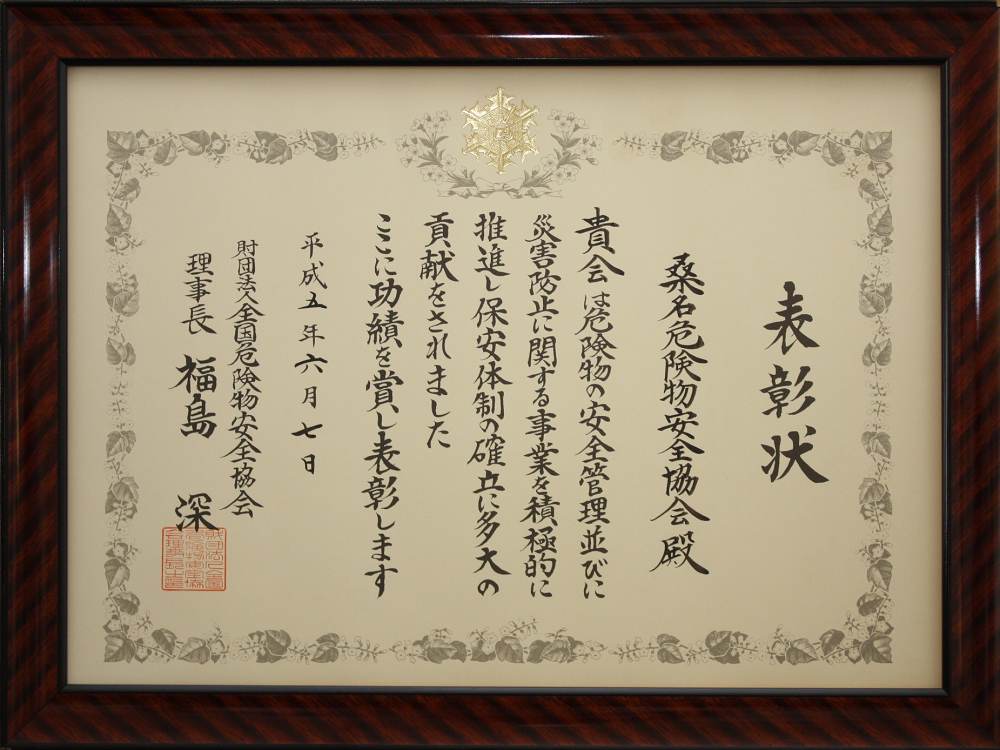 表彰状
桑名危険物安全協会殿
貴会は危険物の安全管理並びに
災害防止に関する事業を積極的に
推進し保安体制の確立に多大の
貢献をされました
ここに功績を賞し表彰します
平成五年六月七日
財団法人全国危険物安全協会
理事長 福島 深